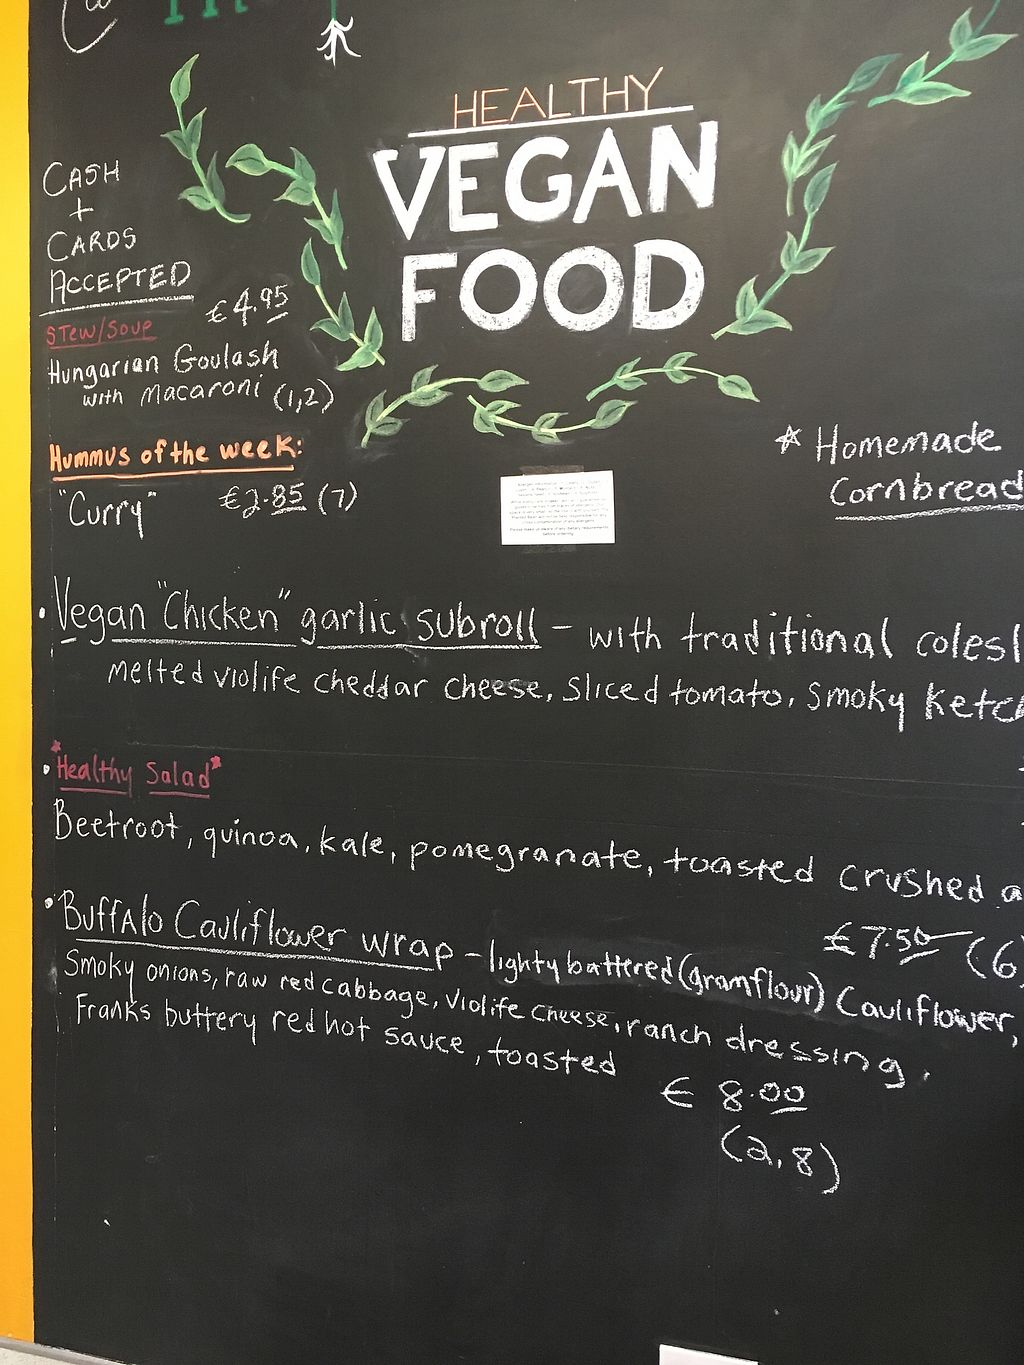 HEALTHY
VEGAN
FOOD
CASH
+
CARDS
ACCEPTED
STEW/SOUP
€4.95
Hungarian Goulash
with Macaroni (1,2)
Hummus of the week:
"Curry" €2.85 (7)
* Homemade
Cornbread
• Vegan "Chicken" garlic subroll - with traditional colesl
melted violife cheddar cheese, sliced tomato, smoky ketc
• *Healthy Salad*
Beetroot, quinoa, kale, pomegranate, toasted crushed a
€7.50 (6)
• Buffalo Cauliflower wrap - lighty battered (gramflour) Cauliflower,
Smoky onions, raw red cabbage, Violife cheese, ranch dressing,
Franks buttery red hot sauce, toasted
€ 8.00
(2,8)